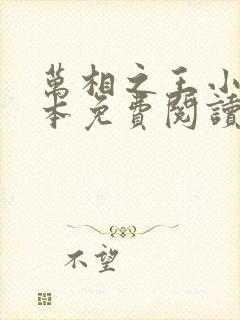 萬相之王小
本免費閱讀
不望